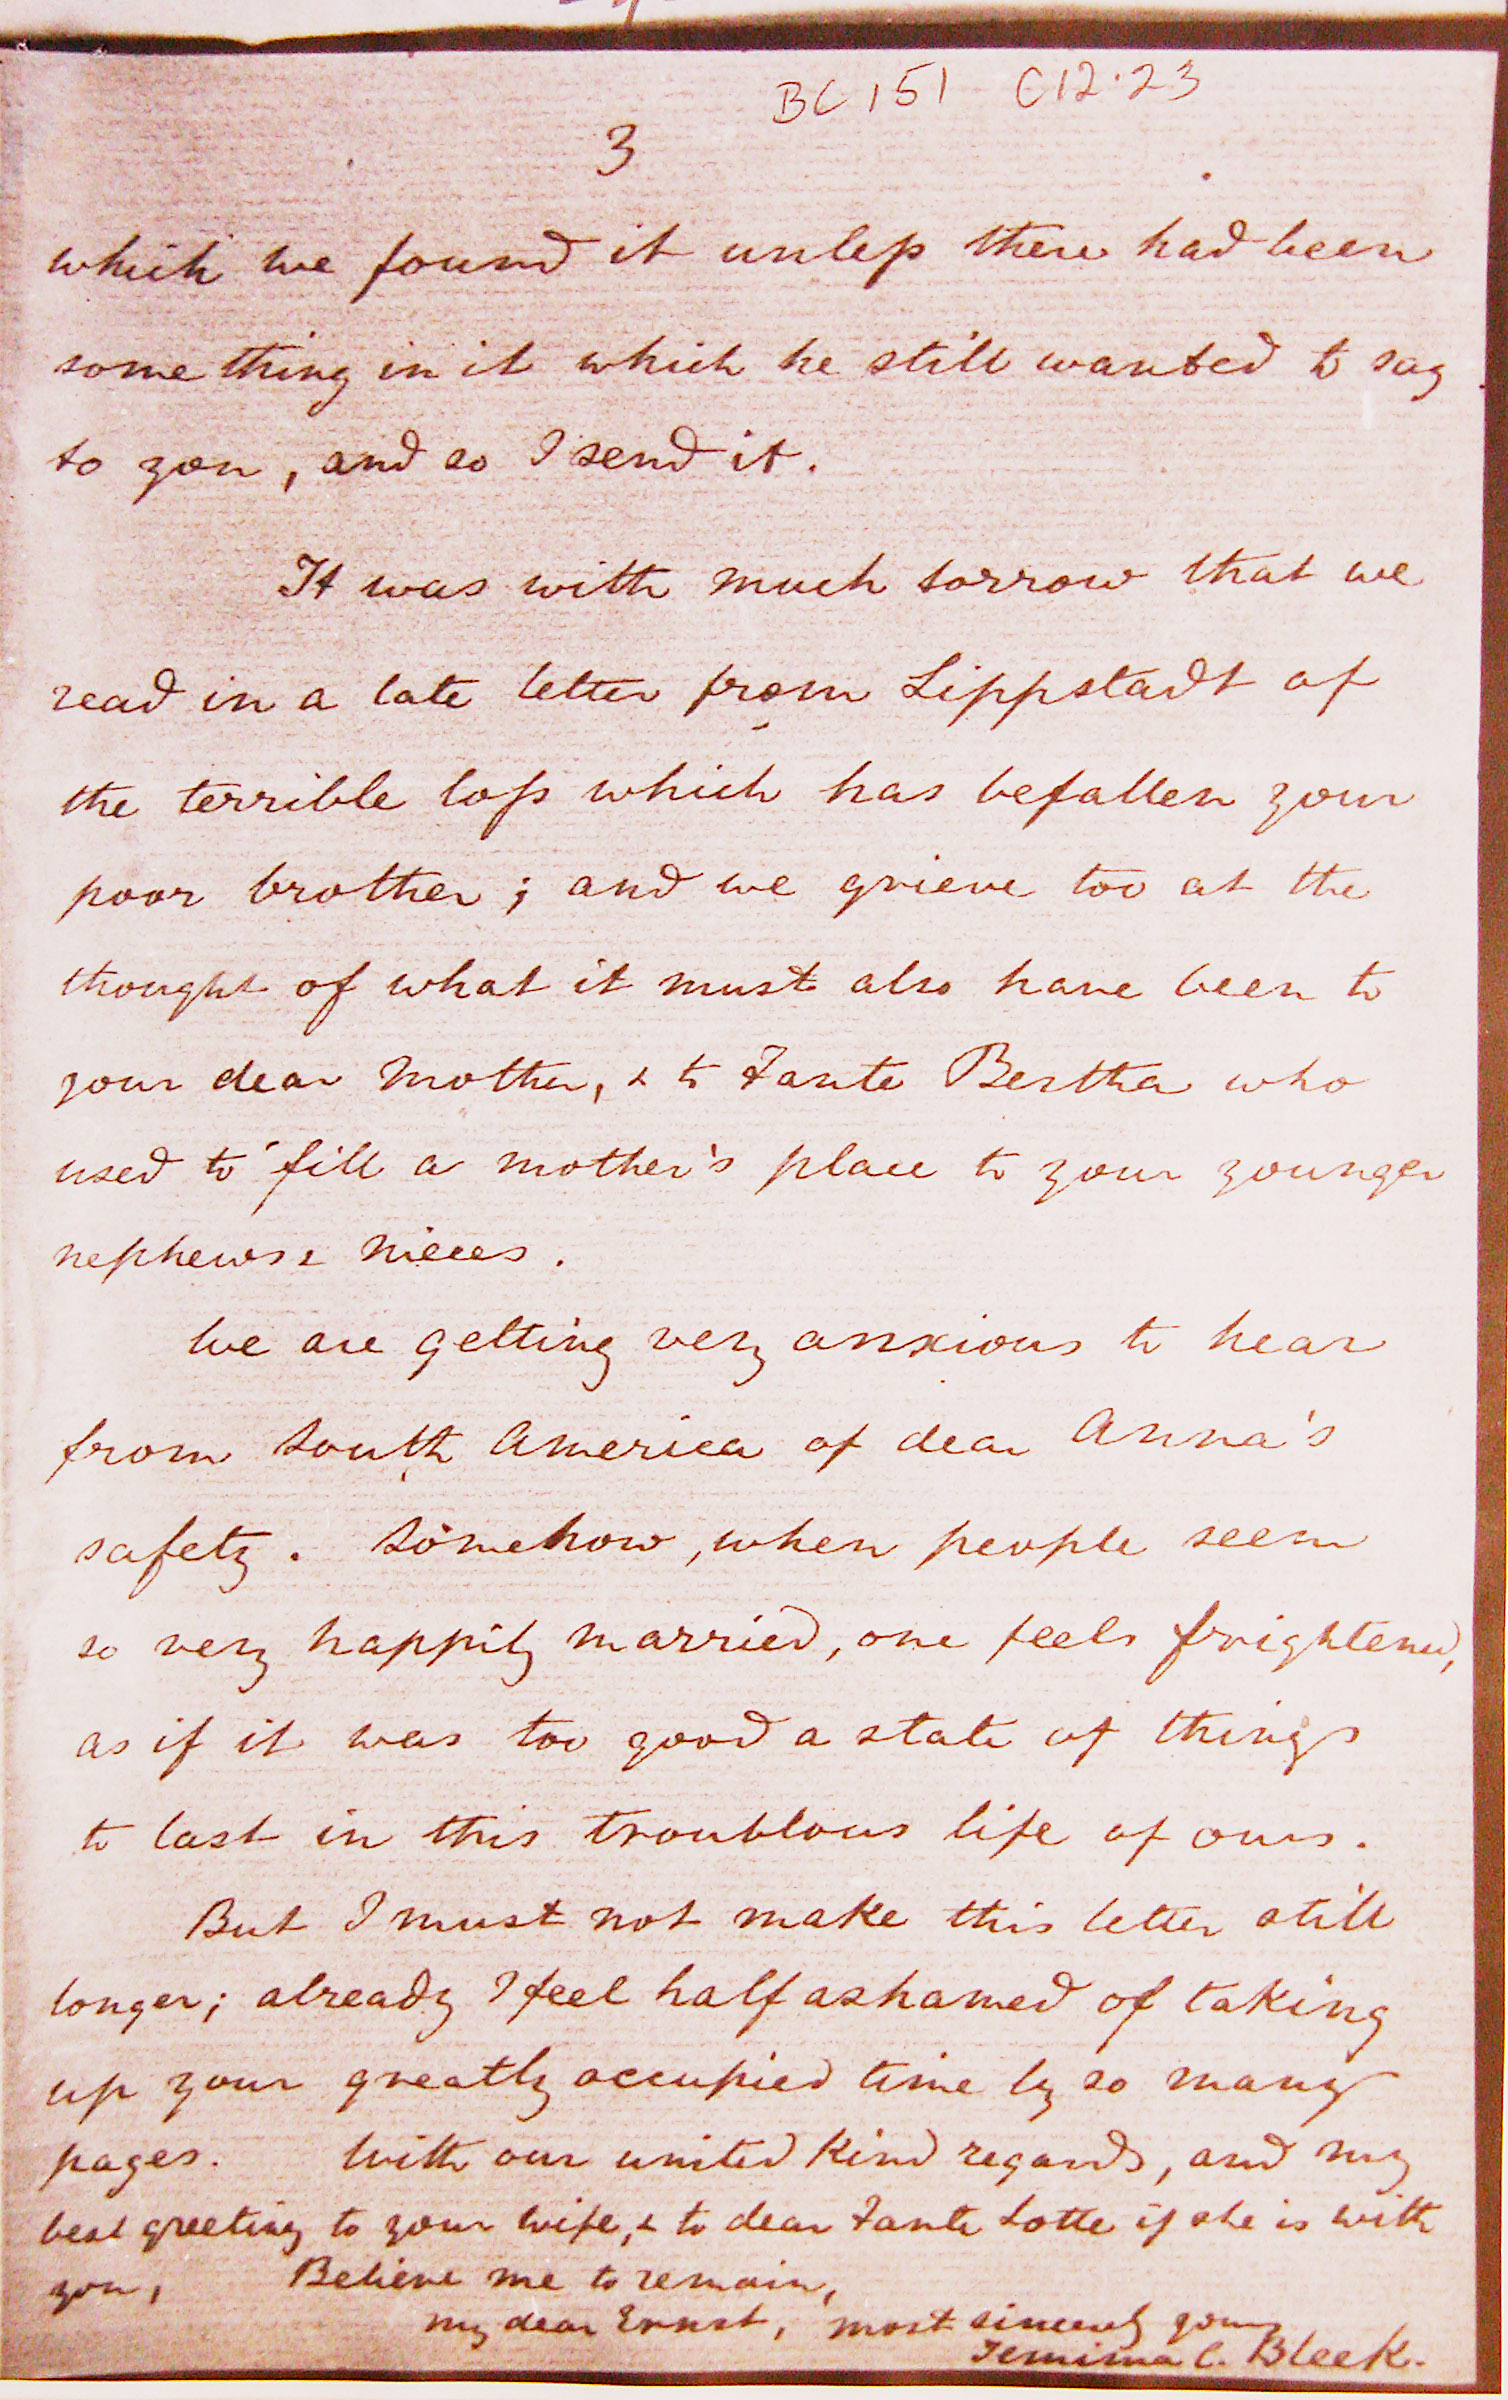 BC 151 C12.23
3
which we found it unless there had been
something in it which he still wanted to say
to you, and so I send it.
It was with much sorrow that we
read in a late letter from Lippstadt of
the terrible loss which has befallen your
poor brother; and we grieve too at the
thought of what it must also have been to
your dear Mother, & to Tante Bertha who
used to fill a mother's place to your younger
nephews & nieces.
We are getting very anxious to hear
from South America of dear Anna's
safety. Somehow, when people seem
so very happily married, one feels frightened,
as if it was too good a state of things
to last in this troublous life of ours.
But I must not make this letter still
longer; already I feel half ashamed of taking
up your greatly occupied time by so many
pages. With our united kind regards, and my
best greeting to your wife, & to dear Tante Lotte if she is with
you, Believe me to remain,
my dear Ernst, most sincerely yours
Jemima C. Bleek.